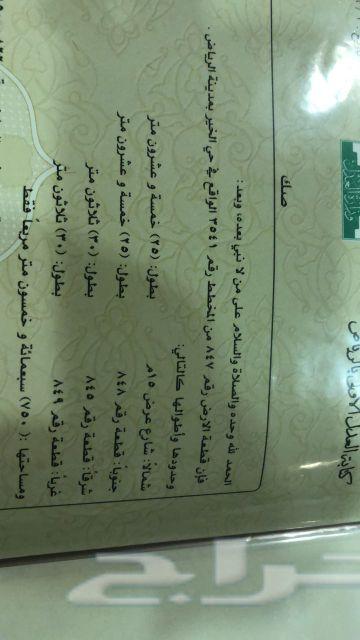 كتابة العدل الأولى بالرياض
صك
الحمد لله وحده والصلاة والسلام على من لا نبي بعده، وبعد:
فإن قطعة الارض رقم ٨٤٧ من المخطط رقم ٣٥٤١ الواقع في حي الخير بمدينة الرياض .
وحدودها وأطوالها كالتالي:
شمالاً: شارع عرض ١٥م بطول: (٢٥) خمسة و عشرون متر
جنوباً: قطعة رقم ٨٤٨ بطول: (٢٥) خمسة و عشرون متر
شرقاً: قطعة رقم ٨٤٥ بطول: (٣٠) ثلاثون متر
غرباً: قطعة رقم ٨٤٩ بطول: (٣٠) ثلاثون متر
ومساحتها : (٧٥٠) سبعمائة و خمسون متر مربعاً فقط
حراج